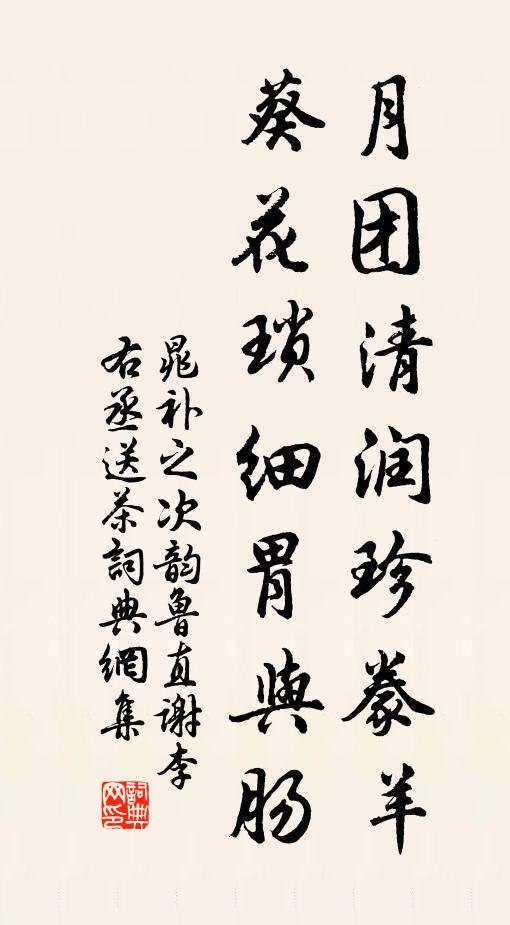 月团清润珍豢羊
葵花琐细胃與肠
晁补之次韵魯直谢李
右丞送茶詞典網集
詞典网印